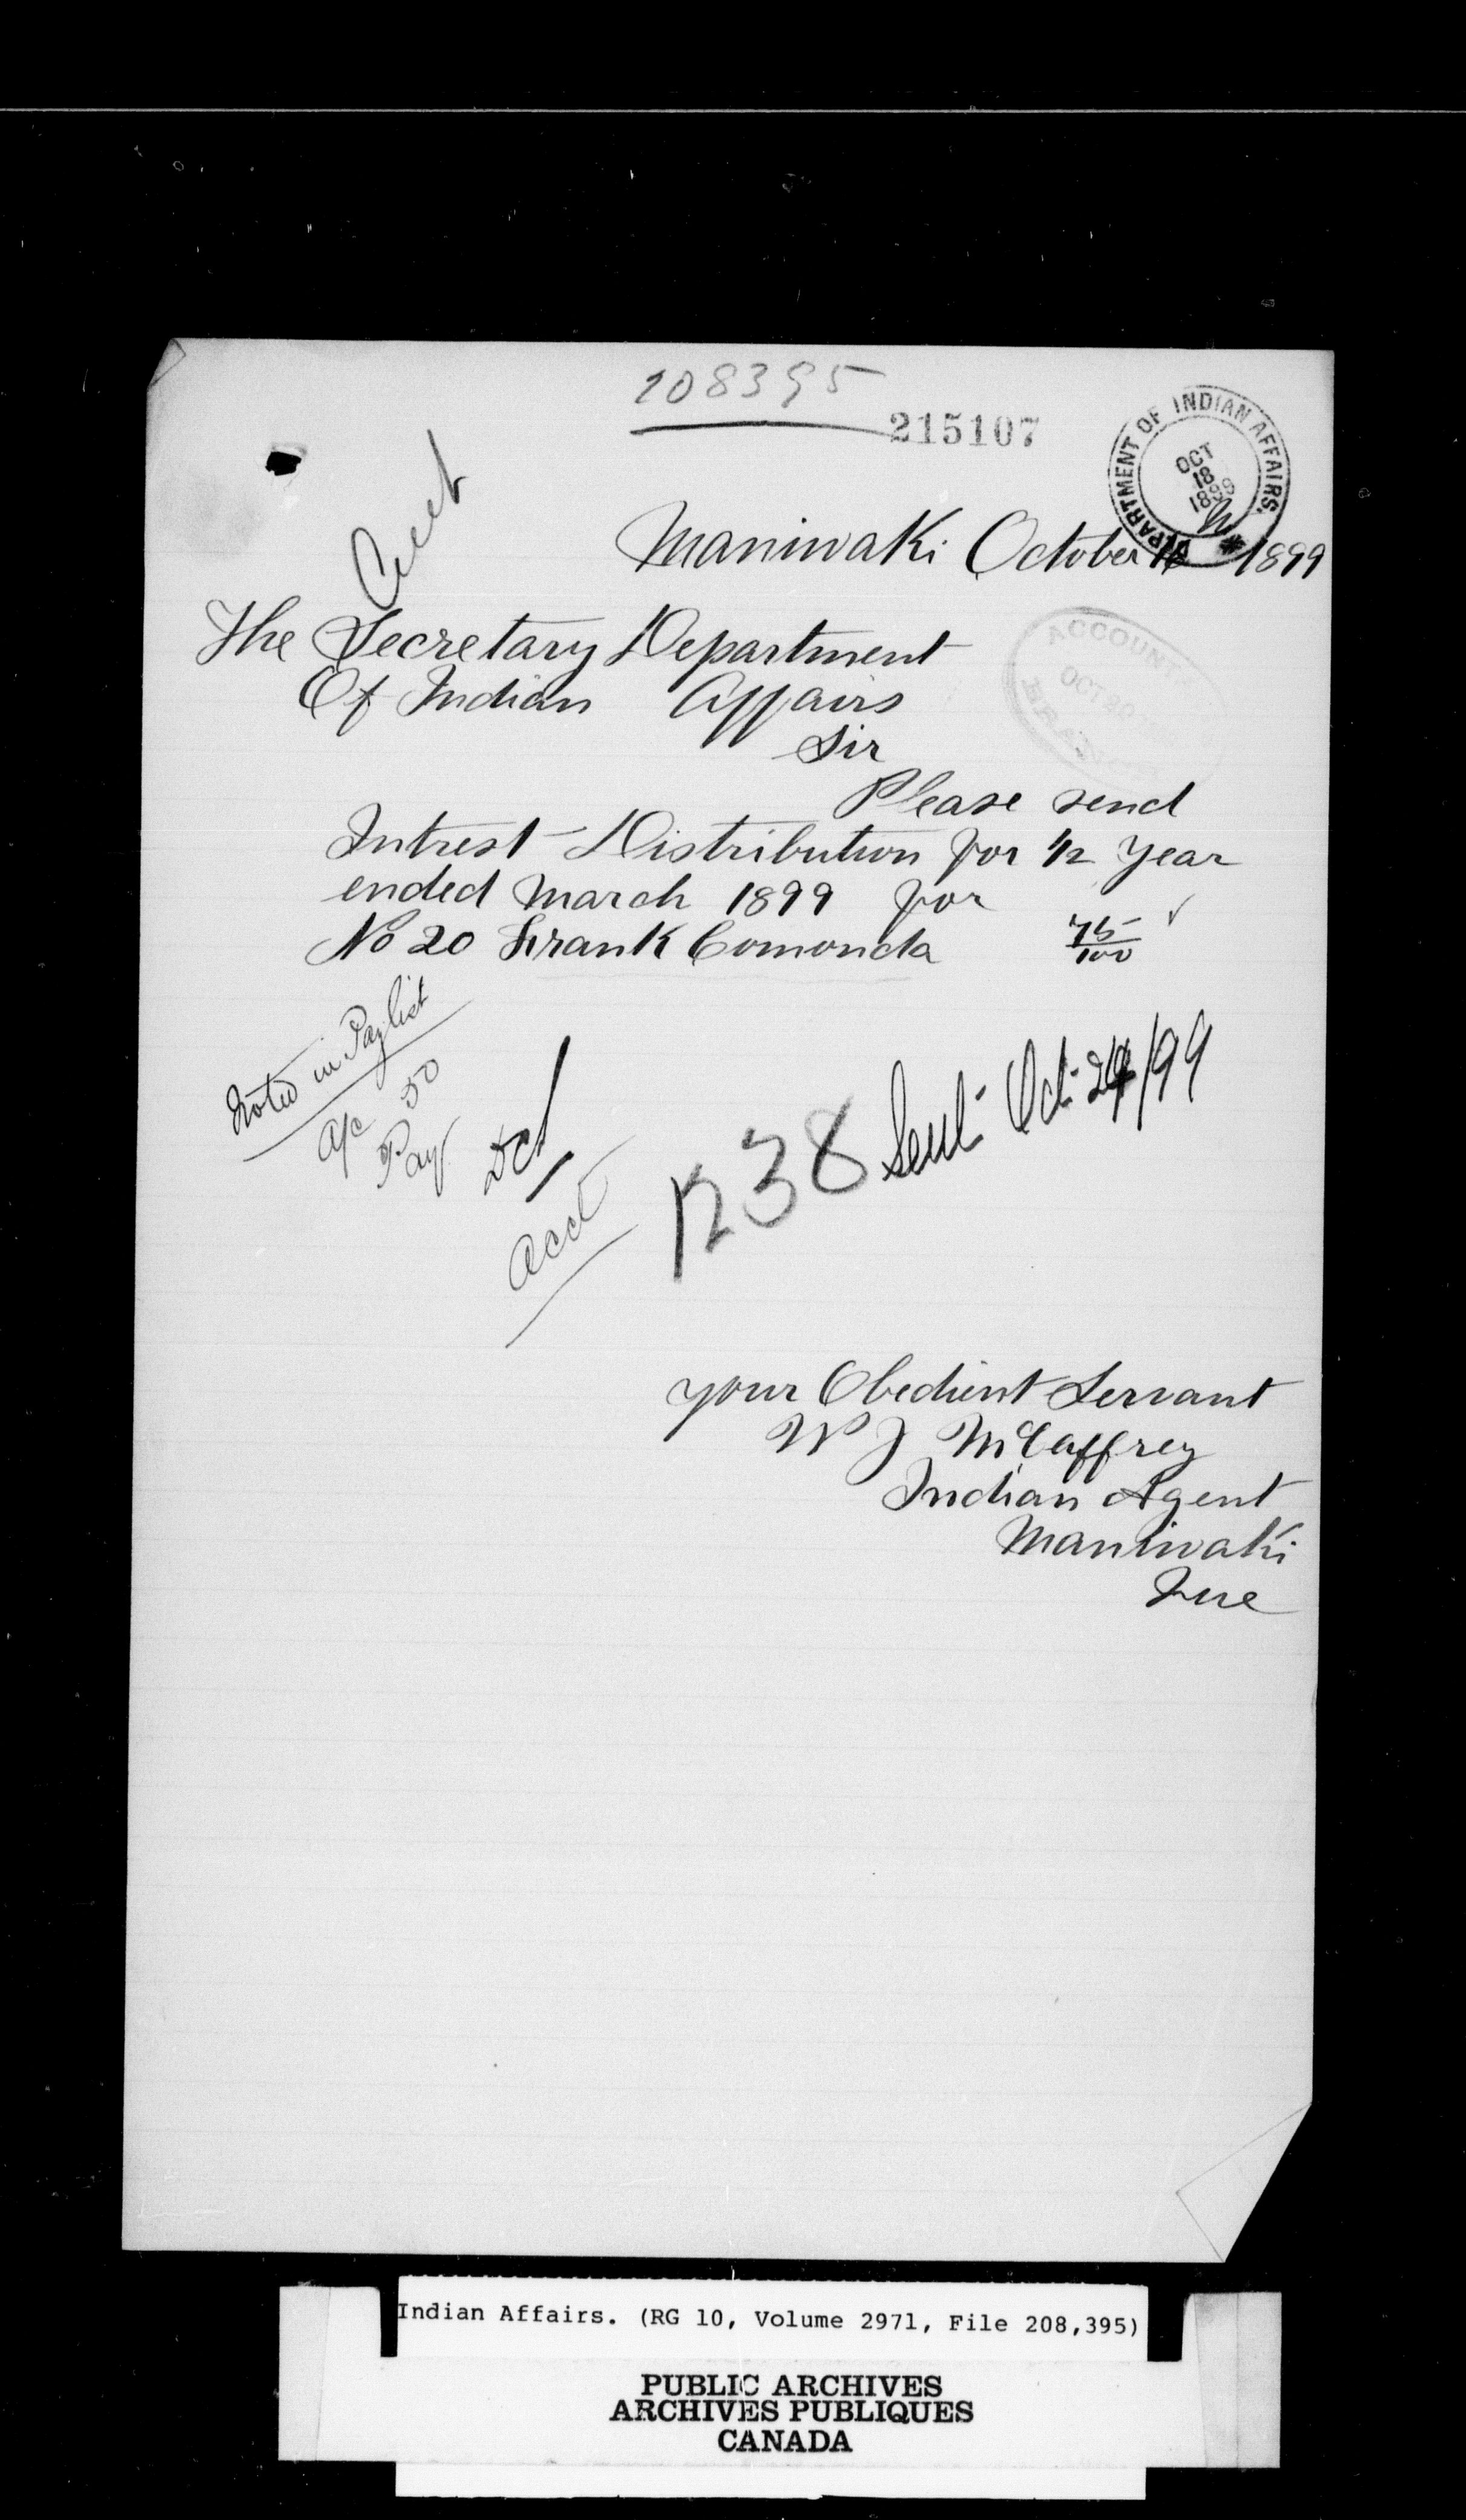 208395
215107
DEPARTMENT OF INDIAN AFFAIRS.
OCT
18
1899
Maniwaki October 1899
The Secretary Department
Of Indian Affairs
ACCOUNT
OCT 20
Sir
Please send
Intrest Distribution for 1/2 year
ended March 1899 for
No 20 Frank Comonda 75/100 ✓
Noted in Paylist
a/c 50
Pay
DCS
Acct
1238 Sent Oct 24/99
your Obedient Servant
W J McCaffrey
Indian Agent
Maniwaki
Que
Indian Affairs. (RG 10, Volume 2971, File 208,395)
PUBLIC ARCHIVES
ARCHIVES PUBLIQUES
CANADA